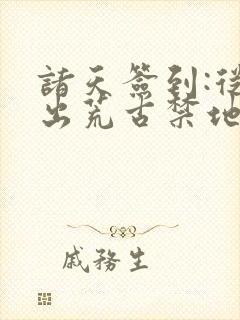 諸天簽到:從
出荒古禁地
戚務生